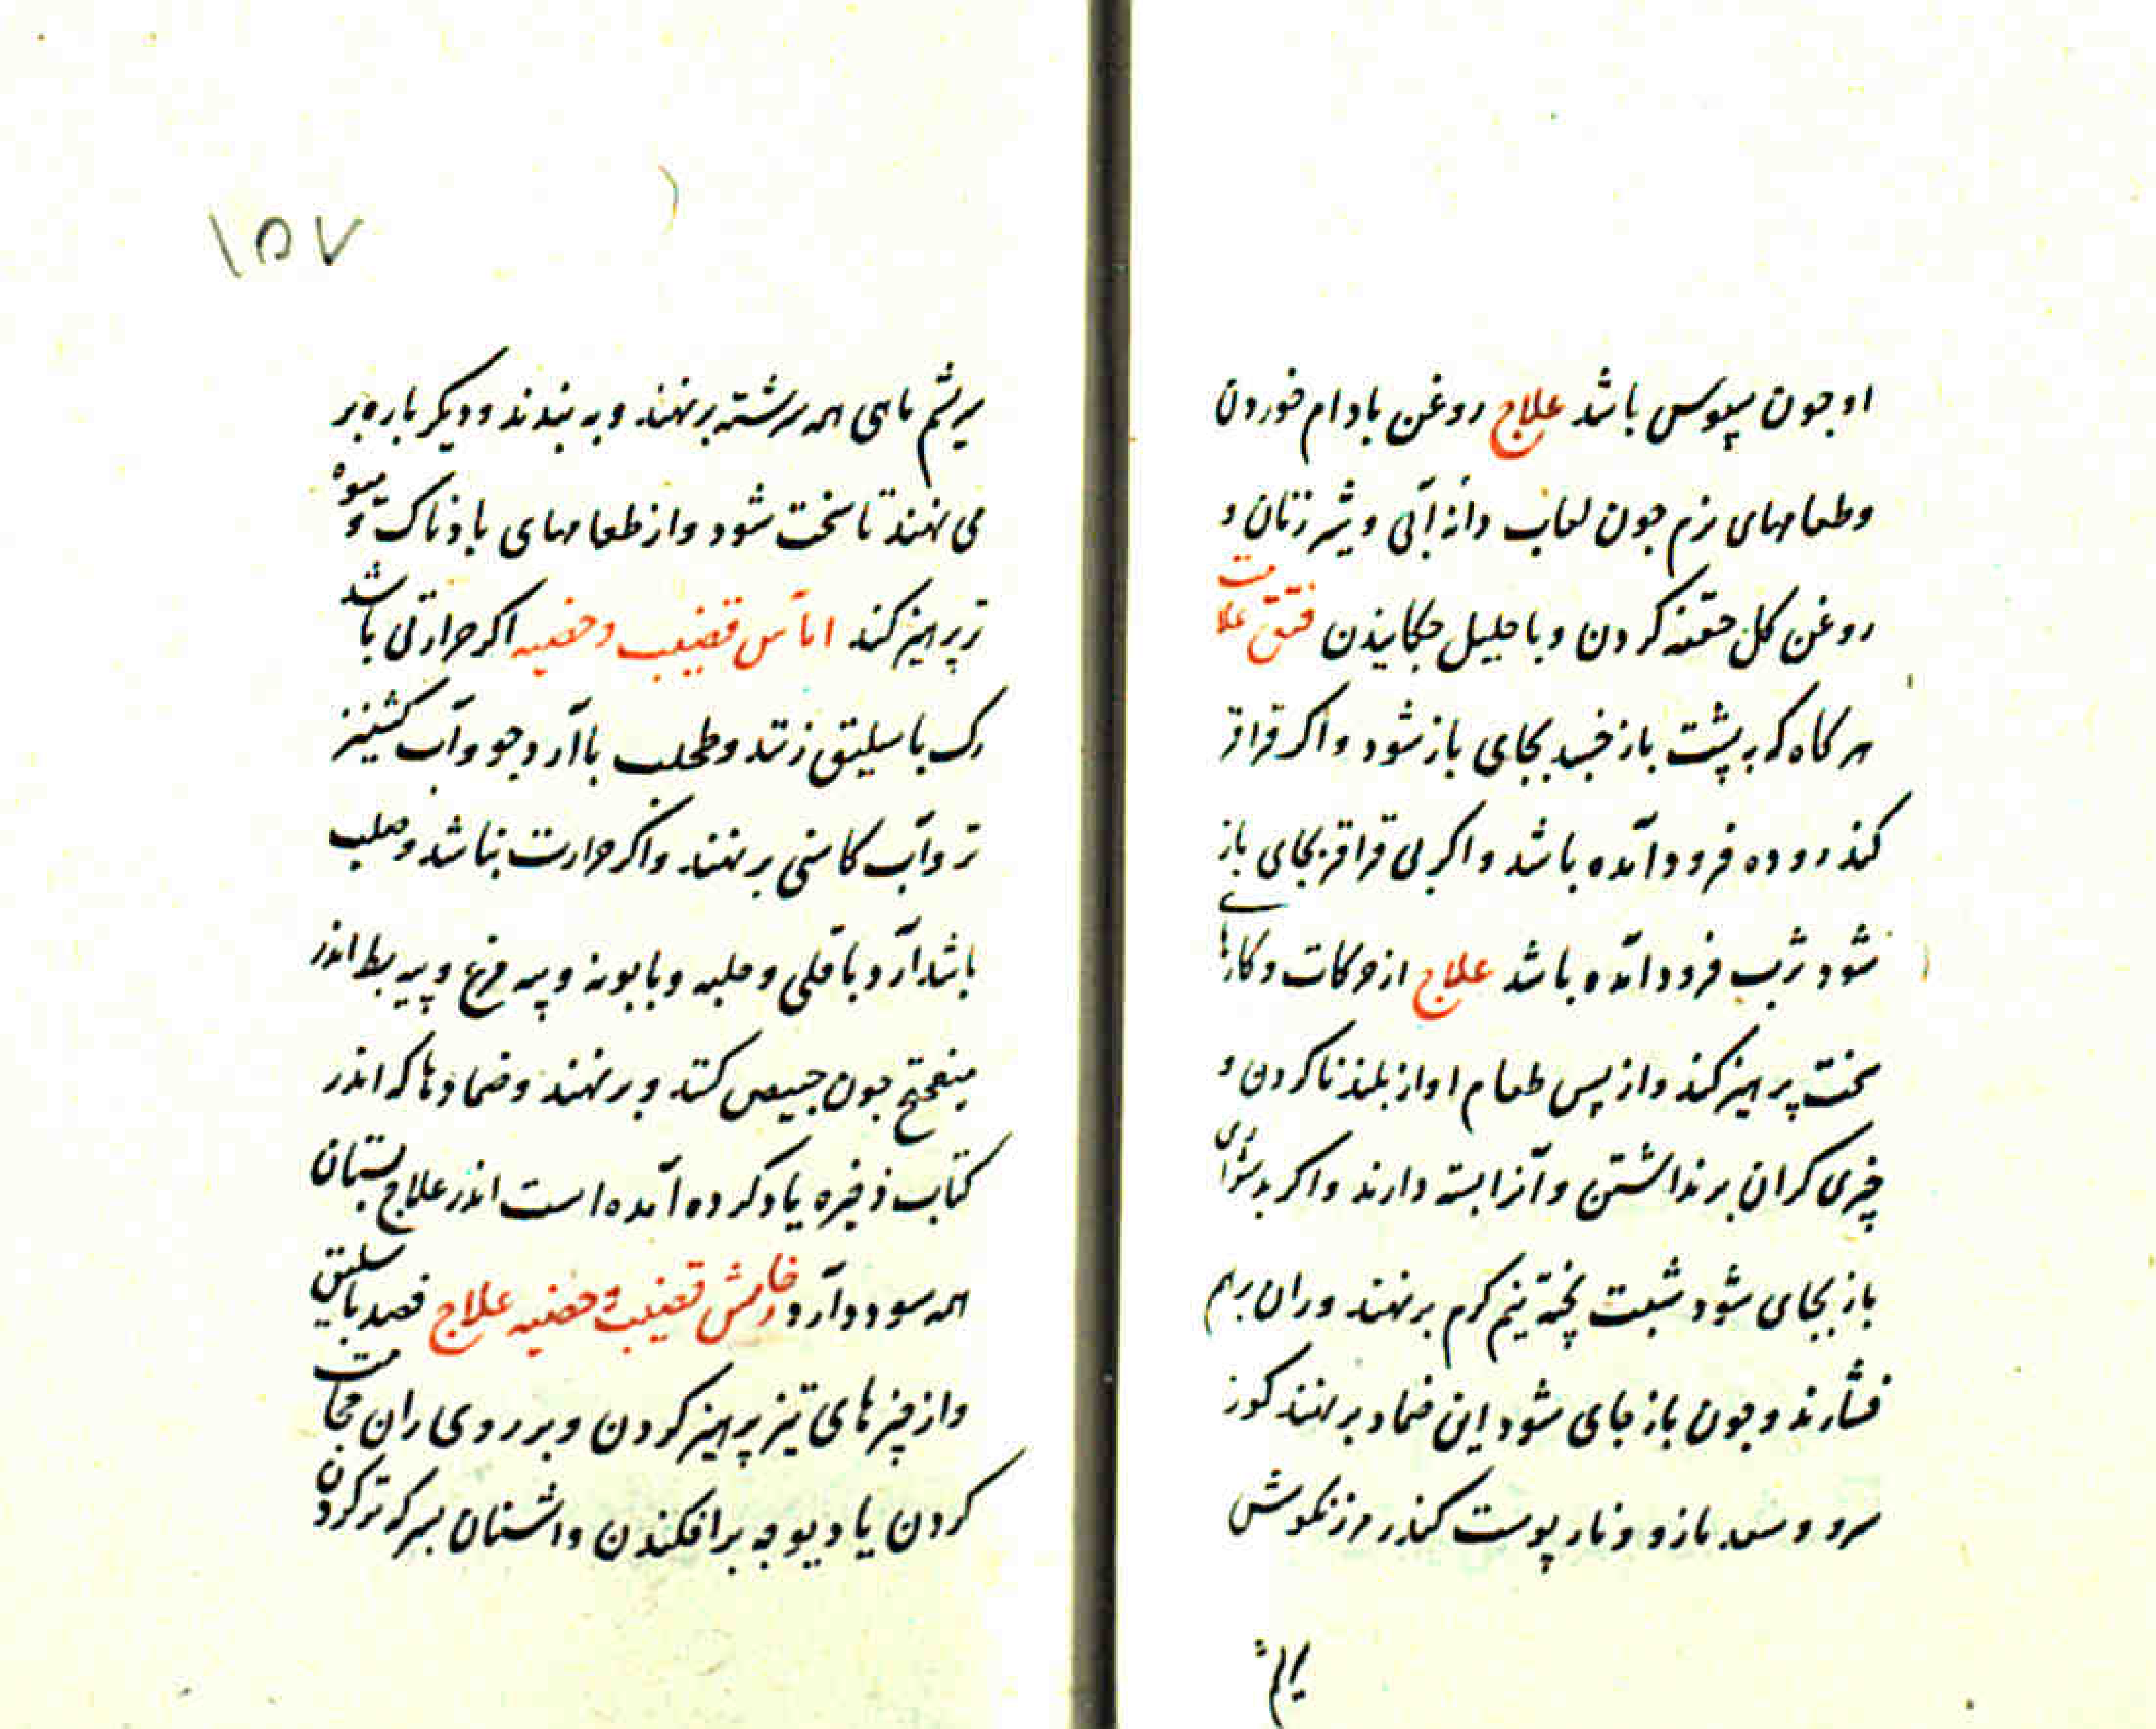 او جون سپوس باشد علاج روغن بادام خوردن
وطعامهای نرم جون لعاب دانه آبی و شیر زنان و
روغن کل حقنه کردن و باحلیل جکانیدن فتق علامت
هر کاه که به پشت باز خسبد بجای باز شود و اکر قراقر
کند روده فرود آمده باشد و اکر بی قراقر بجای باز
شود ثرب فرود آمده باشد علاج از حرکات و کارهای
سخت پرهیز کند و از پس طعام اواز بلند ناکردن و
چیزی کران برنداشتن و آنرا بسته دارند و اکر بدشواری
باز بجای شود شبت پخته نیم کرم برنهند و ران برهم
فشارند و جون باز جای شود این ضماد برنهند کوز
سرو و مازو و نار پوست کندر مرزنکوش
سریشم
۱۵۷
سریشم ماهی همه سرشته برنهند و به بندند و دیکر باره بر
می نهند تا سخت شود و از طعامهای بادناک و میوه
تر پرهیز کند اماس قضیب و خصیه اکر حرارتی باشد
رک باسلیق زنند و طحلب باآرد جو و آب کشنیز
تر و آب کاسنی بر نهند و اکر حرارت نباشد و صلب
باشد آرد باقلی و حلبه و بابونه و پیه مرغ و پیه بط اندر
میفختج جون خبیص کنند و برنهند و ضمادها که اندر
کتاب ذخیره یاد کرده آمده است اندر علاج پستان
همه سود دارد و خارش قضیب و خصیه علاج فصد باسلیق
و از چیزهای تیز پرهیز کردن و بر روی ران حجامت
کردن یا دیوجه برافکندن و اشنان بسرکه تر کردن